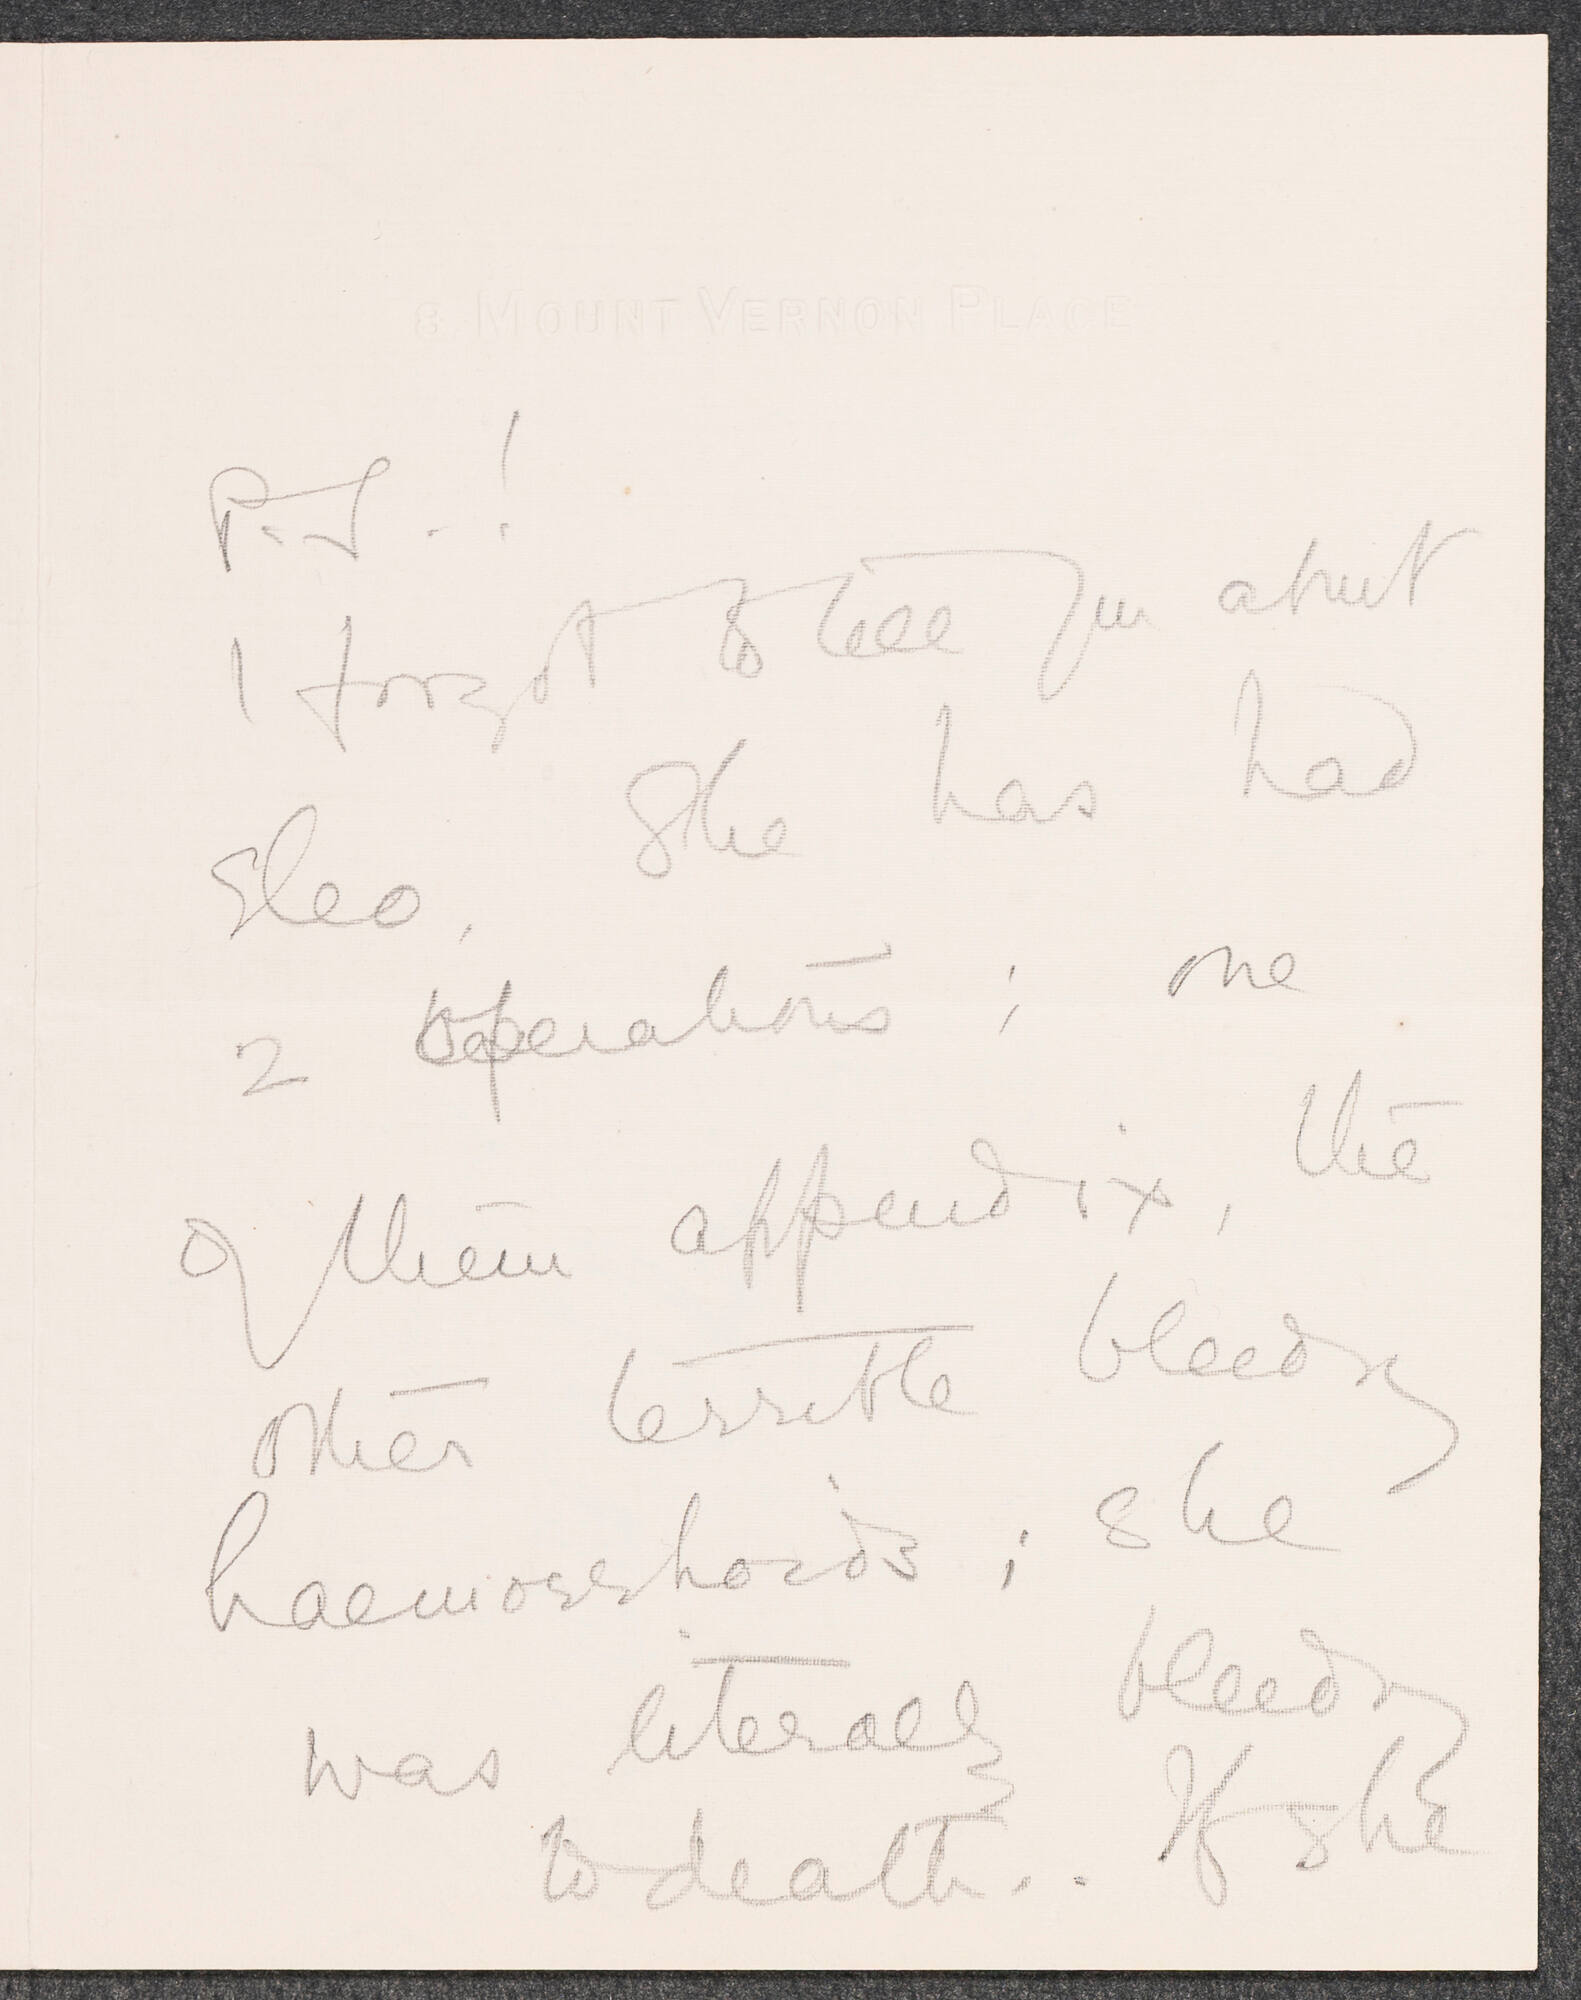 8 MOUNT VERNON PLACE
P.S.!
I forgot to tell you about
Cleo. She has had
2 operations; one
of them appendix, the
other terrible bleeding
haemorrhoids; she
was literally bleeding
to death.. If she